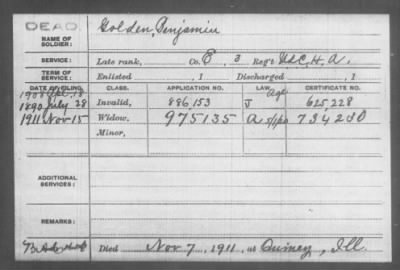 DEAD.
NAME OF SOLDIER: Golden, Benjamin
SERVICE: Late rank, Co. E, 3 Reg't U.S.C.H.A.
TERM OF SERVICE: Enlisted , 1 Discharged , 1
DATE OF FILING. CLASS. APPLICATION NO. LAW. CERTIFICATE NO.
1908 18 Age
1890 July 28 Invalid, 886,153 J 625,228
1911 Nov 15 Widow, 975135 a 734280
Minor,
ADDITIONAL SERVICES:
REMARKS:
Died Nov 7, 1911, at Quincy, Ill.